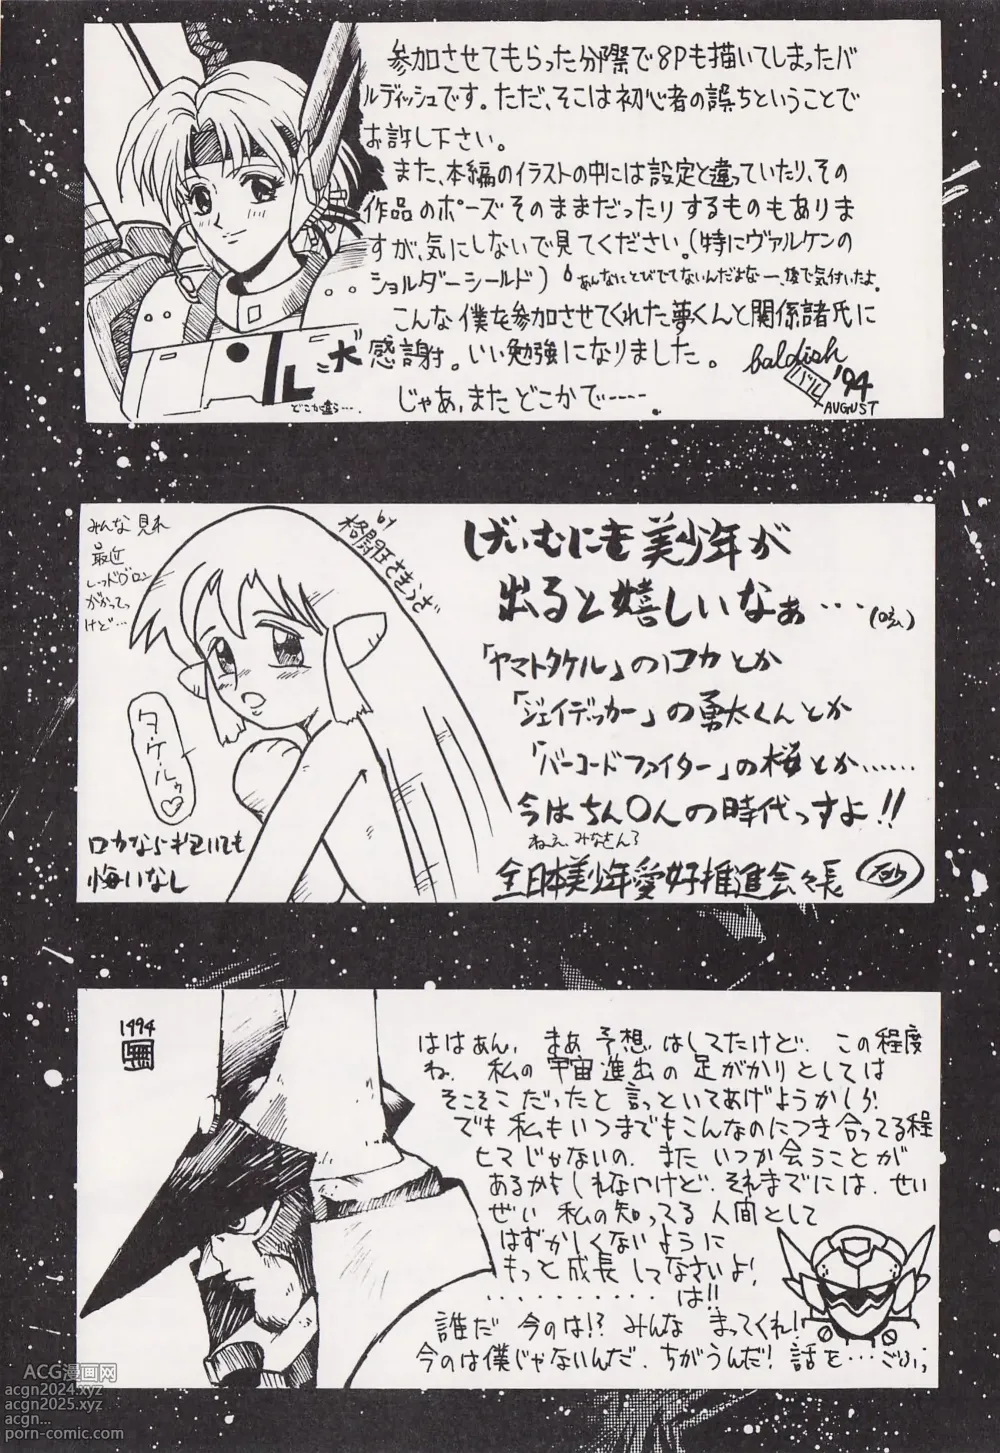 参加させてもらった分際で8Pも描いてしまったバ
ルディッシュです。ただ、そこは初心者の誤ちということで
お許し下さい。
また、本編のイラストの中には設定と違っていたり、その
作品のポーズそのままだったりするものもありま
すが、気にしないで見てください。(特にヴァルケンの
ショルダーシールド)
あんなにとびでてないんだよなー、後で気付いたよ。
こんな僕を参加させてくれた夢くんと関係諸氏に
大感謝。いい勉強になりました。
じゃあ、またどこかで----
baldish
バル
'94
AUGUST
どこが違う…
みんな見れ
最近
レッドブロン
がかってっ
けど…
by
格闘王さきうざ
げいむにも美少年が
出ると嬉しいなぁ…
「ヤマトタケル」のロカとか
「ジェイデッカー」の勇太くんとか
「バーコードファイター」の桜とか……
今はちん○んの時代っすよ!!
ねぇ、みなさん?
全日本美少年愛好推進会々長
タケルゥ♡
悔いなし
1994
ははぁん、まあ予想はしてたけど、この程度
ね。私の宇宙進出の足がかりとしては
そこそこだったと言っといてあげようかしら。
でも私もいつまでもこんなのにつき合ってる程
ヒマじゃないの。またいつか会うことが
あるかもしれないけど、それまでには、せい
ぜい私の知ってる人間として
はずかしくないように
もっと成長してなさいよ!
・・・・・・・・・・は!!
誰だ 今のは!? みんな まってくれ!
今のは僕じゃないんだ、ちがうんだ! 話を…
ACG漫画网
acgn2024.xyz
acgn2025.xyz
acgn...
porn-comic.com